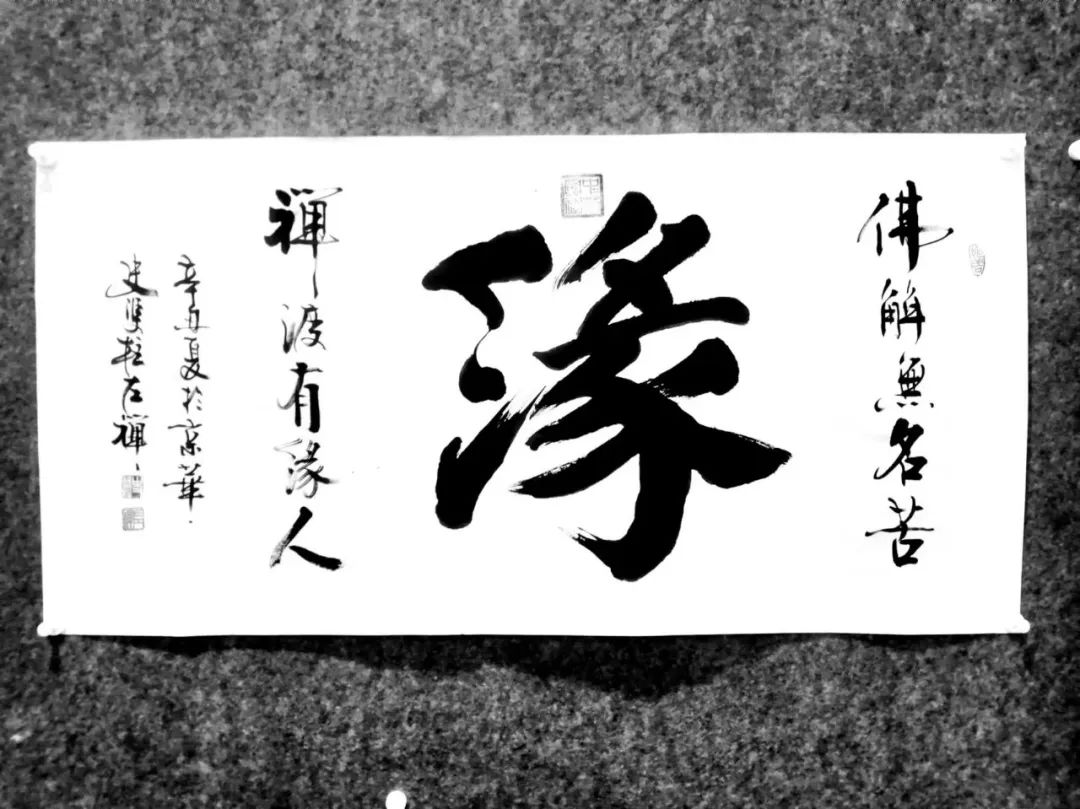 佛解無名苦
緣
禪渡有緣人
辛丑夏於京華
史雙柱左禪